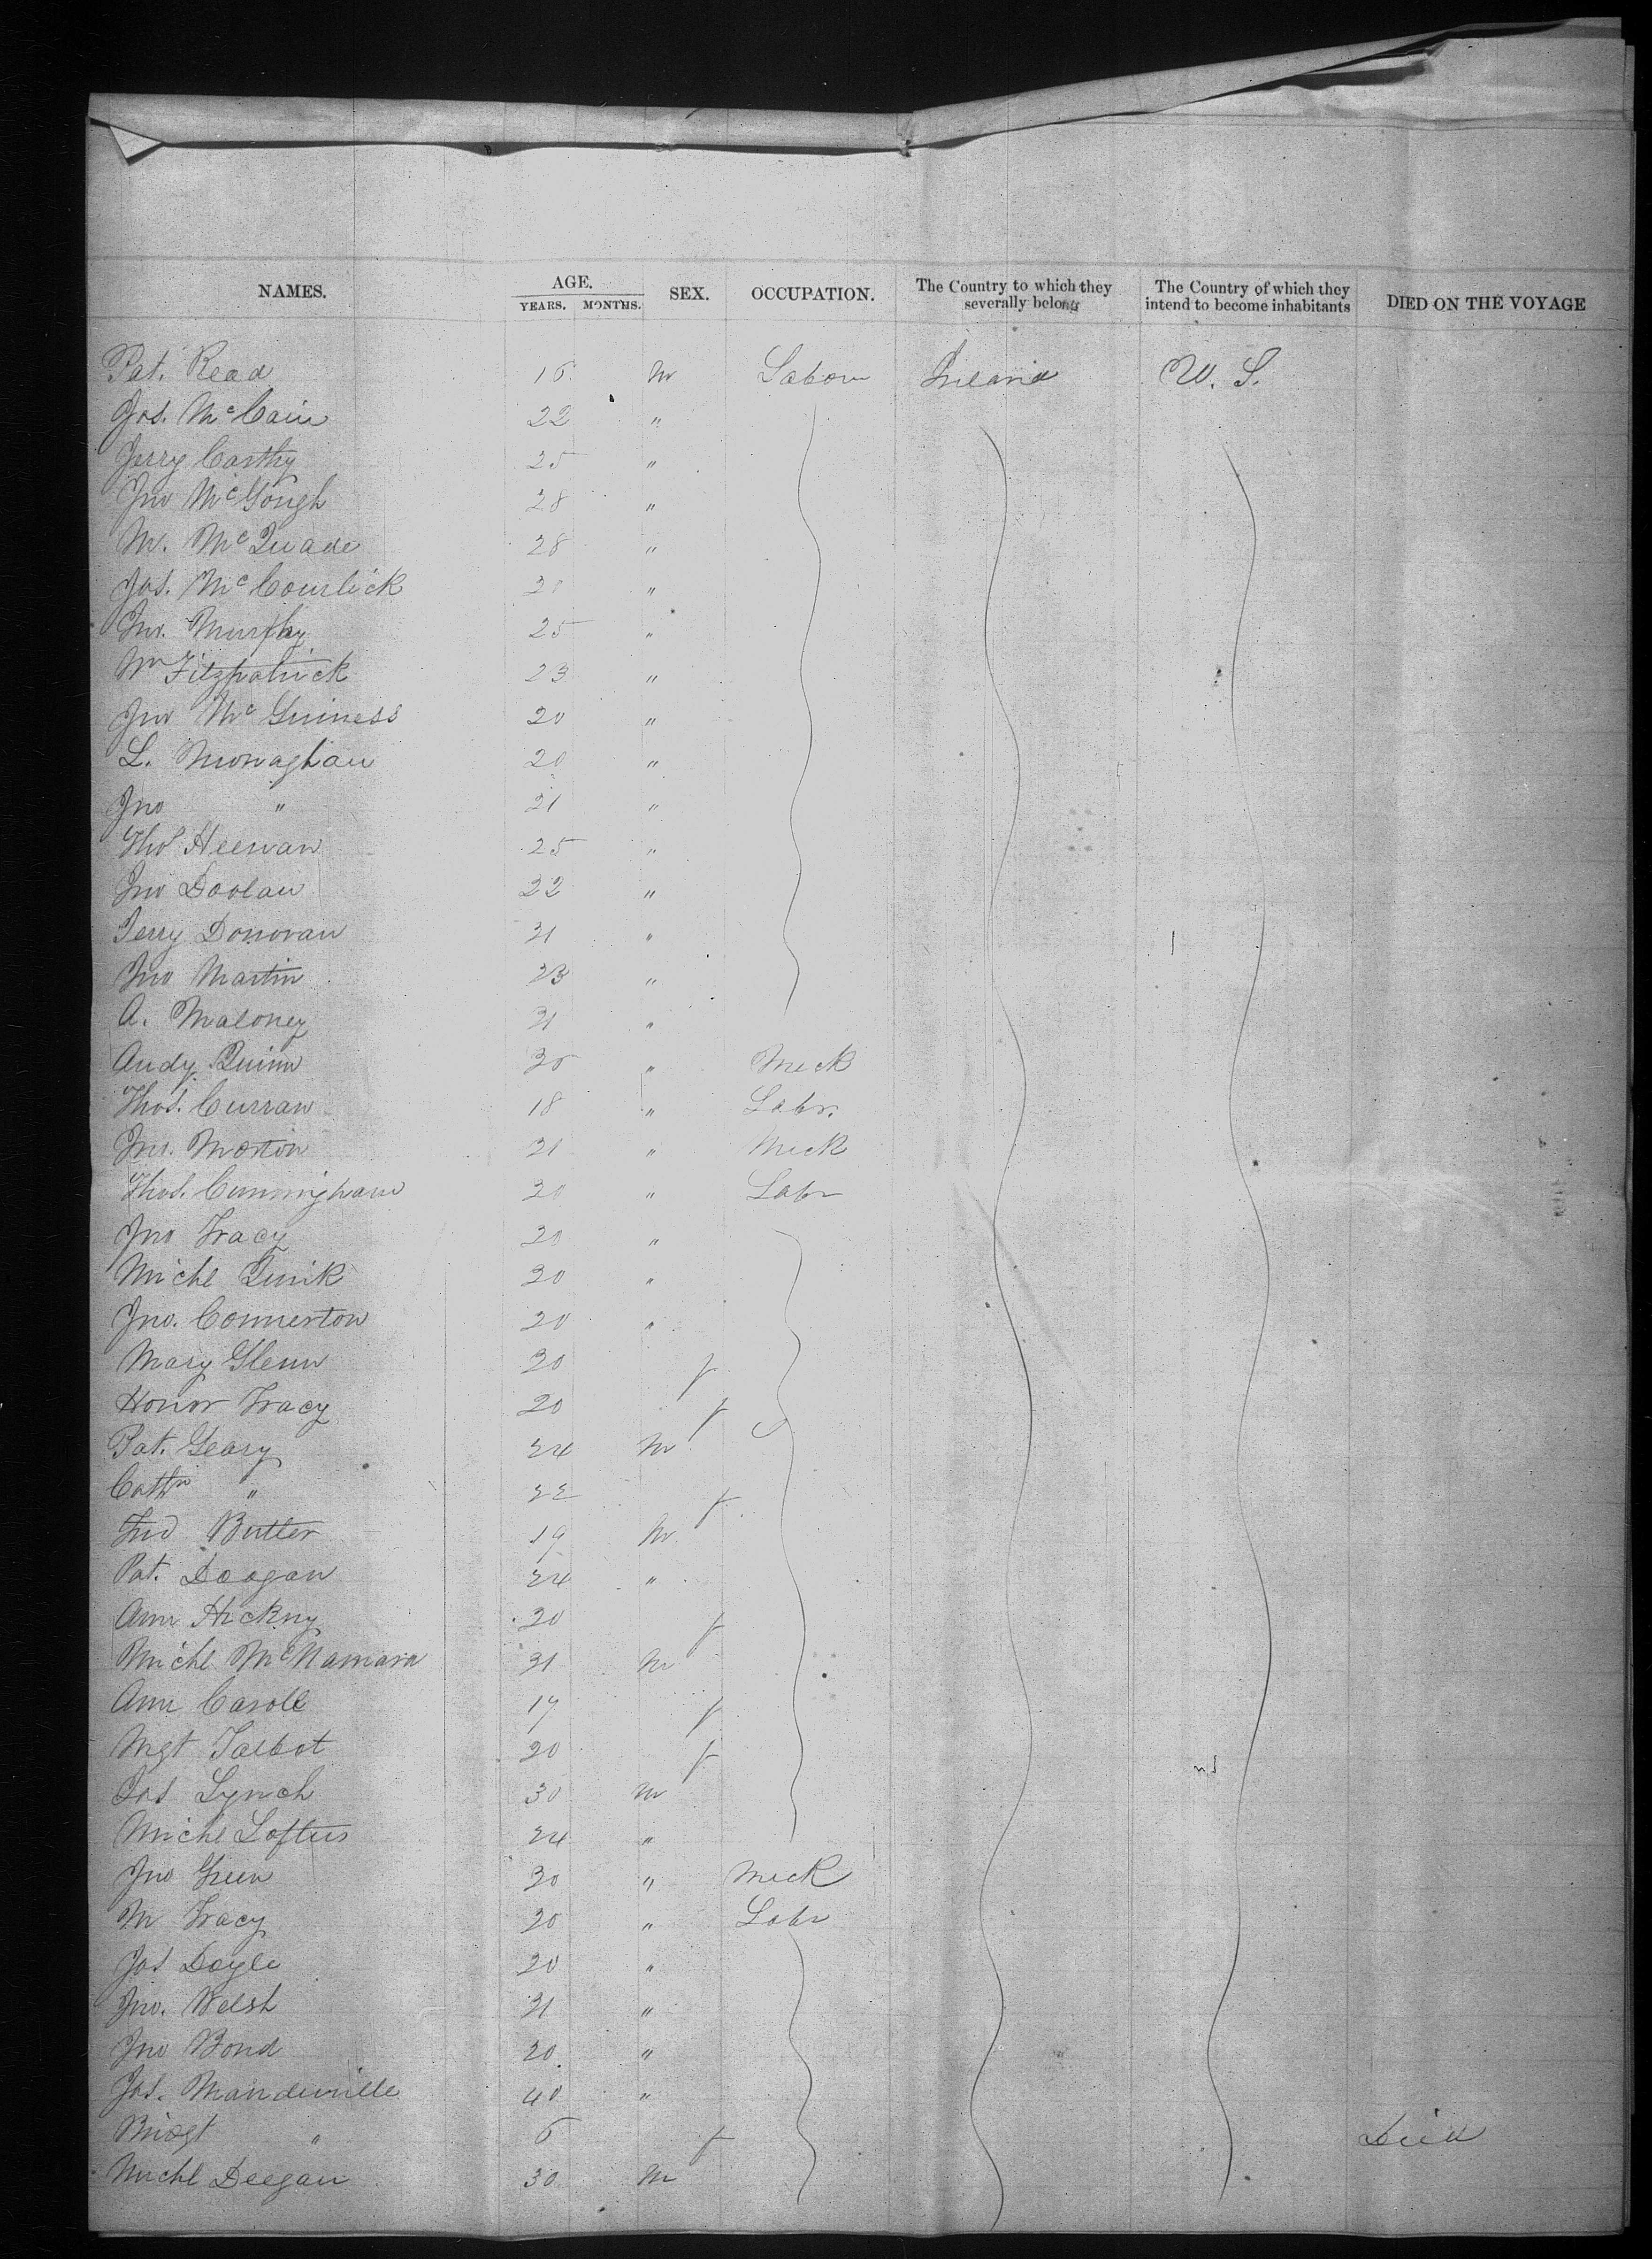 NAMES. AGE. YEARS. MONTHS. SEX. OCCUPATION. The Country to which they severally belong The Country of which they intend to become inhabitants DIED ON THE VOYAGE
Pat. Read 16 M Labour Ireland U. S.
Jas. McCain 22 "
Jerry Carthy 25 "
Jno McGough 28 "
M. McQuade 28 "
Jas. McCourlick "
Jno. Murphy 25 "
Wm Fitzpatrick 23 "
Jno McGuiness 20 "
L. Monaghan 20 "
Jno " 21 "
Thos Heenan 25 "
Jno Doolan 22 "
Jerry Donovan 21 "
Jno Martin 23 "
A. Maloney 21 "
Andy Quinn "  Meck
Thos. Curran 18 " Labr.
Jno. Morton 21 " Meck
Thos. Cunningham 20 " Labr
Jno Tracy 20 "
Michl Quirk 20 "
Jno. Connerton 20 "
Mary Glenn 20 f
Honor Tracy 20 f
Pat. Geary 24 M
Cathn " 22 f
Jno Butler 19 M
Pat. Doogan 24 "
Ann Hickny 20 f
Michl McNamara 21 M
Ann Caroll 17 f
Mgt Talbot 20 f
Jas Lynch 30 M
Michl Loftus 24 "
Jno Green 30 " Meck
M Tracy 20 " Labr
Jas Doyle 20 "
Jno. Welsh 21 "
Jno Bond 20 "
Jas. Mandeville 40 "
Bridgt " 6 f Died
Michl Deegan 30 M